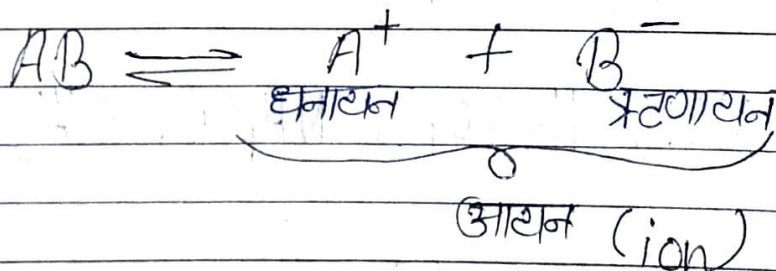 AB ⇌ A⁺ + B⁻
धनायन ऋणायन
आयन (ion)